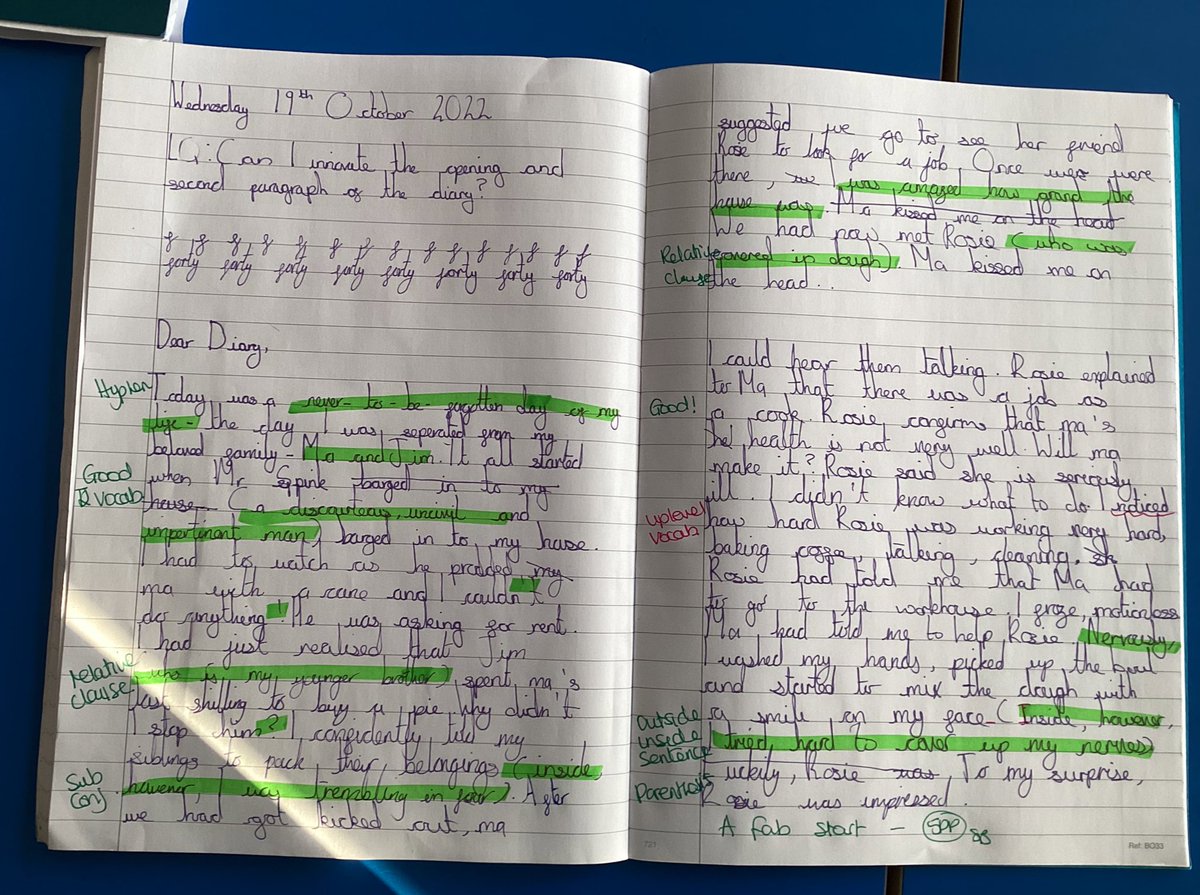 Wednesday 19th October 2022
LQ: Can I innovate the opening and
second paragraph of the diary?
f f f f f f f f f f f f f
forty forty forty forty forty forty forty forty
Dear Diary,
Hyphen Today was a never-to-be-fogotten day of my
life - the day I was seperated from my
beloved family - Ma and Jim. It all started
Good when Mr Spink barged in to my
vocab house (a discourteous, uncivil and
impertinent man) barged in to my house.
I had to watch as he proded my
ma with a cane and I couldn't
do anything! He was asking for rent.
I had just realised that Jim
Relative clause who is my younger brother), spent ma's
last shilling to buy a pie. Why didn't
I stop him? I, confidently told my
siblings to pack their belongings (inside,
Sub Conj however, I was trembling in fear). After
we had got kicked out, ma
suggested we go to see her friend
Rose to look for a job. Once we were
there, I was amazed how grand the
house was. Ma kissed me on the head
We had now met Rosie (who was
Relative clause covered in dough). Ma kissed me on
the head..
I could hear them talking. Rosie explained
to Ma that there was a job as
Good! a cook. Rosie confirms that ma's
health is not very well. Will ma
make it? Rosie said she is seriously
ill. I didn't know what to do. I noticed
uplevel vocab how hard Rosie was working very hard,
baking, talking, cleaning.
Rosie had told me that Ma had
to go to the workhouse, I froze, motionless
Ma had told me to help Rosie. Nervously,
I washed my hands, picked up the bowl
and started to mix the dough with
outside inside sentence a smile on my face (Inside, however,
I tried hard to cover up my nerves)
Parenthesis uckily, Rosie was, To my surprise,
Rosie was impressed.
A fab start -
721
Ref: BO33